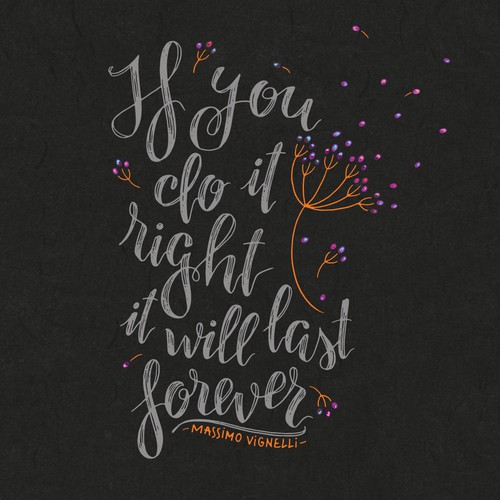 If you
do it
right
it will last
forever
-MASSIMO ViGNELLi-